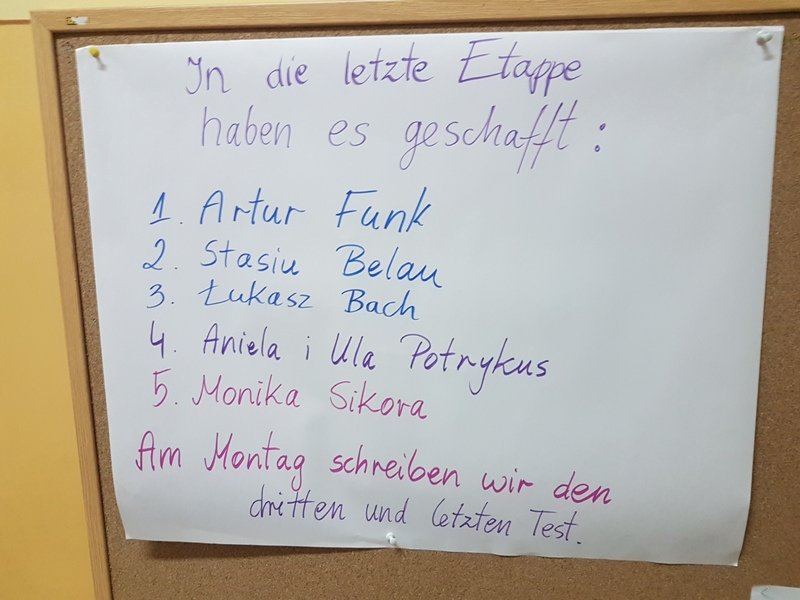 In die letzte Etappe
haben es geschafft:
1. Artur Funk
2. Stasiu Belau
3. Łukasz Bach
4. Aniela i Ula Potrykus
5. Monika Sikora
Am Montag schreiben wir den
dritten und letzten Test.